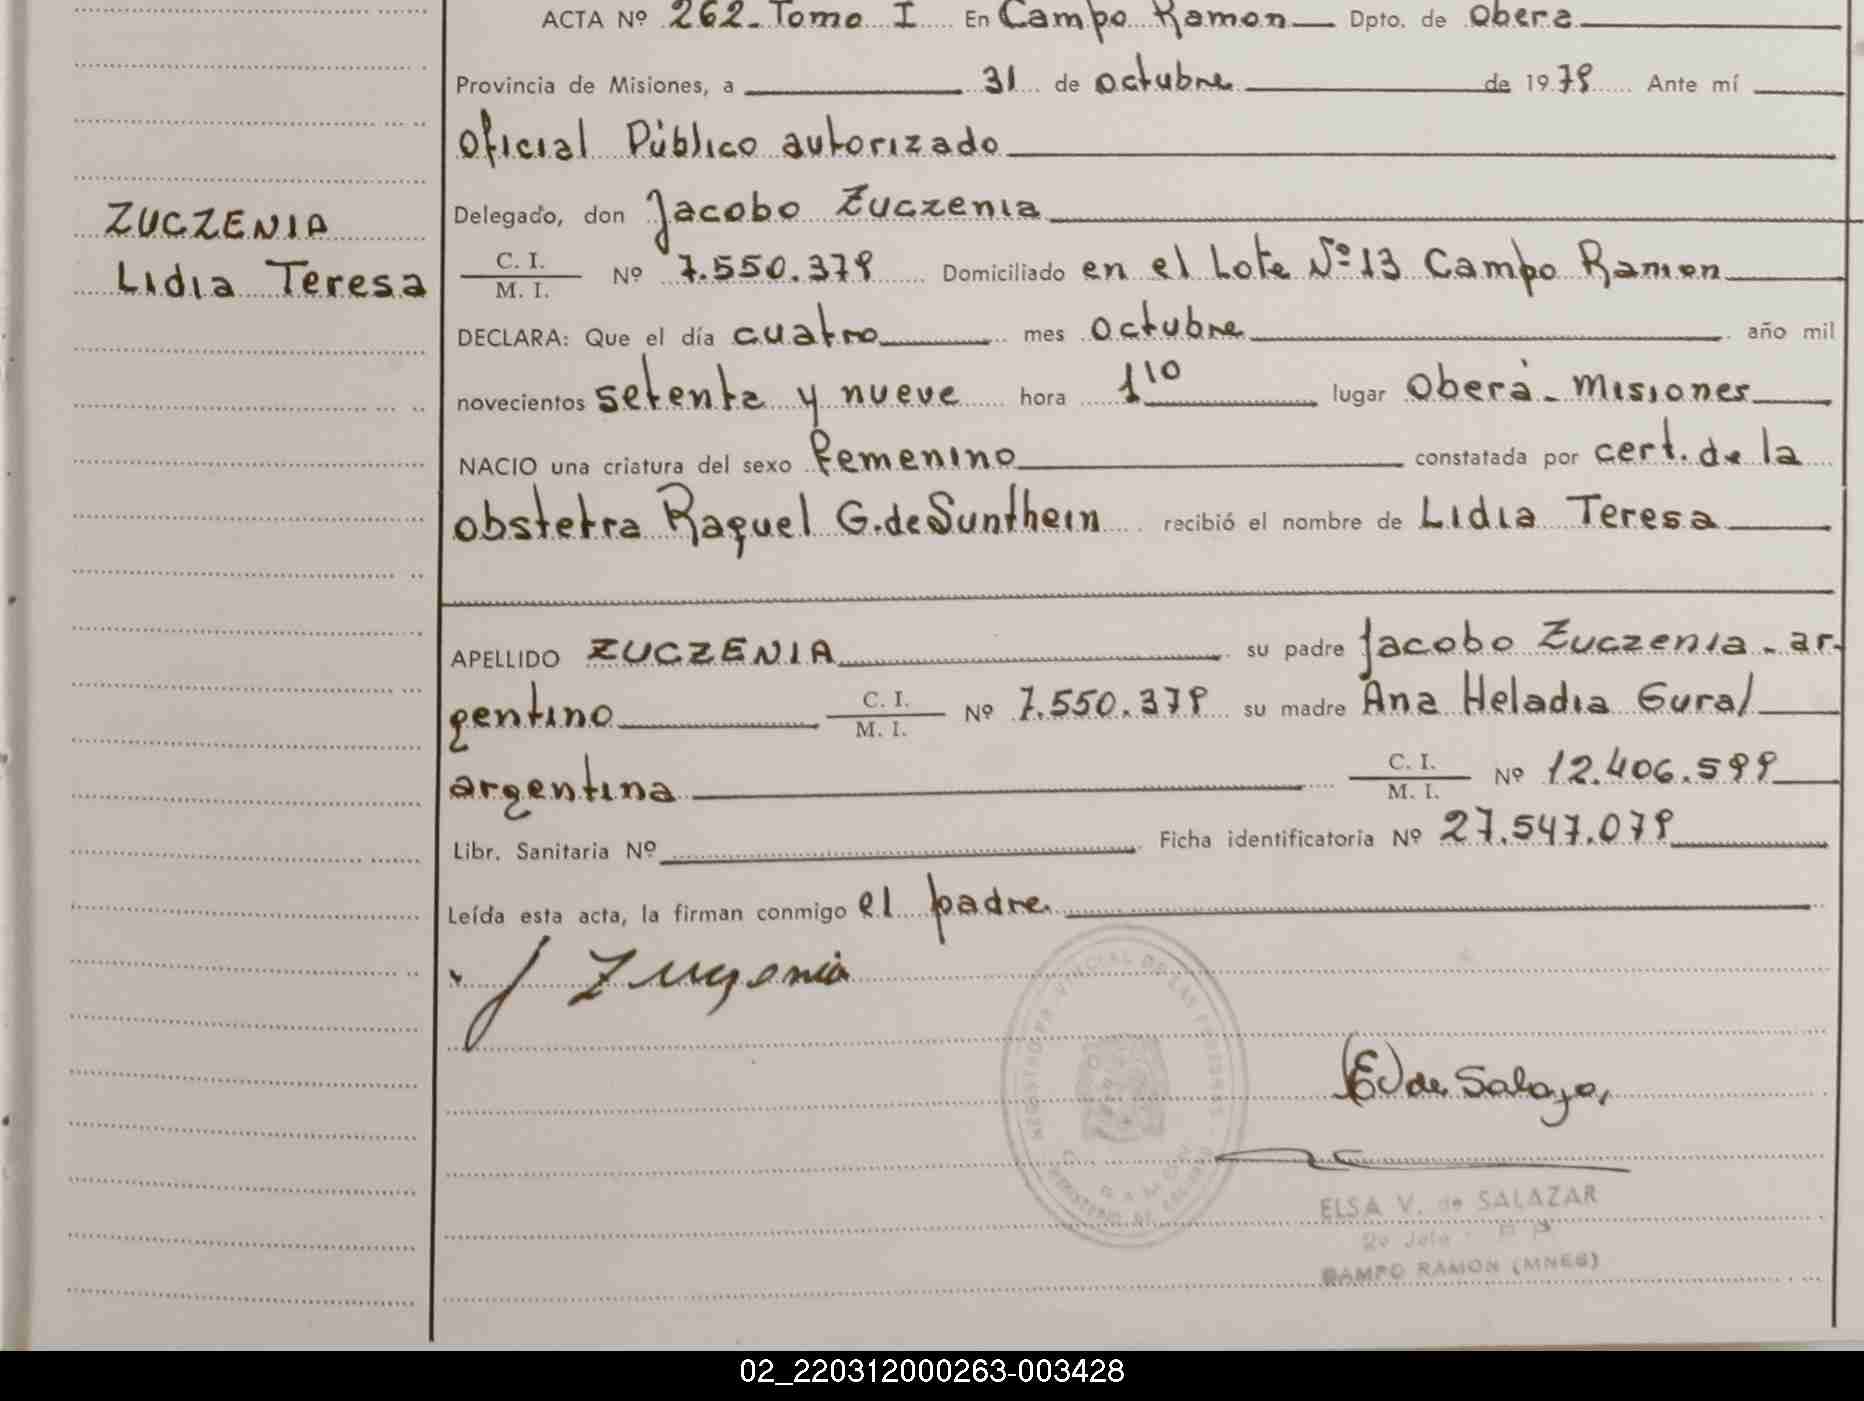 ACTA Nº 262 - Tomo I En Campo Ramon Dpto. de Obera
Provincia de Misiones, a 31 de octubre de 1979 Ante mí
Oficial Público autorizado
ZUCZENIA
Lidia Teresa
Delegado, don Jacobo Zuczenia
C. I. / M. I. Nº 7.550.379 Domiciliado en el Lote Nº 13 Campo Ramon
DECLARA: Que el día cuatro mes octubre año mil
novecientos setenta y nueve hora 1 10 lugar Oberá - Misiones
NACIO una criatura del sexo femenino constatada por cert. de la
obstetra Raquel G. de Sunthein recibió el nombre de Lidia Teresa
APELLIDO ZUCZENIA su padre Jacobo Zuczenia - ar-
gentino C. I. / M. I. Nº 7.550.379 su madre Ana Heladia Gural
argentina C. I. / M. I. Nº 12.406.599
Libr. Sanitaria Nº Ficha identificatoria Nº 27.547.079
Leída esta acta, la firman conmigo el padre.
ELSA V. de SALAZAR
CAMPO RAMON (MNES)
02_220312000263-003428